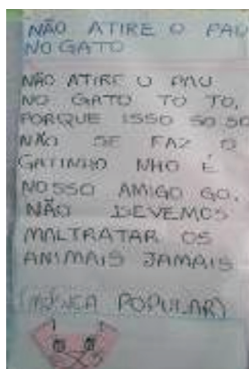 NÃO ATIRE O PAU
NO GATO
NÃO ATIRE O PAU
NO GATO TO TO,
PORQUE ISSO SO SO
NÃO SE FAZ O
GATINHO NHO É
NOSSO AMIGO GO.
NÃO DEVEMOS
MALTRATAR OS
ANIMAIS JAMAIS
(MÚSICA POPULAR)